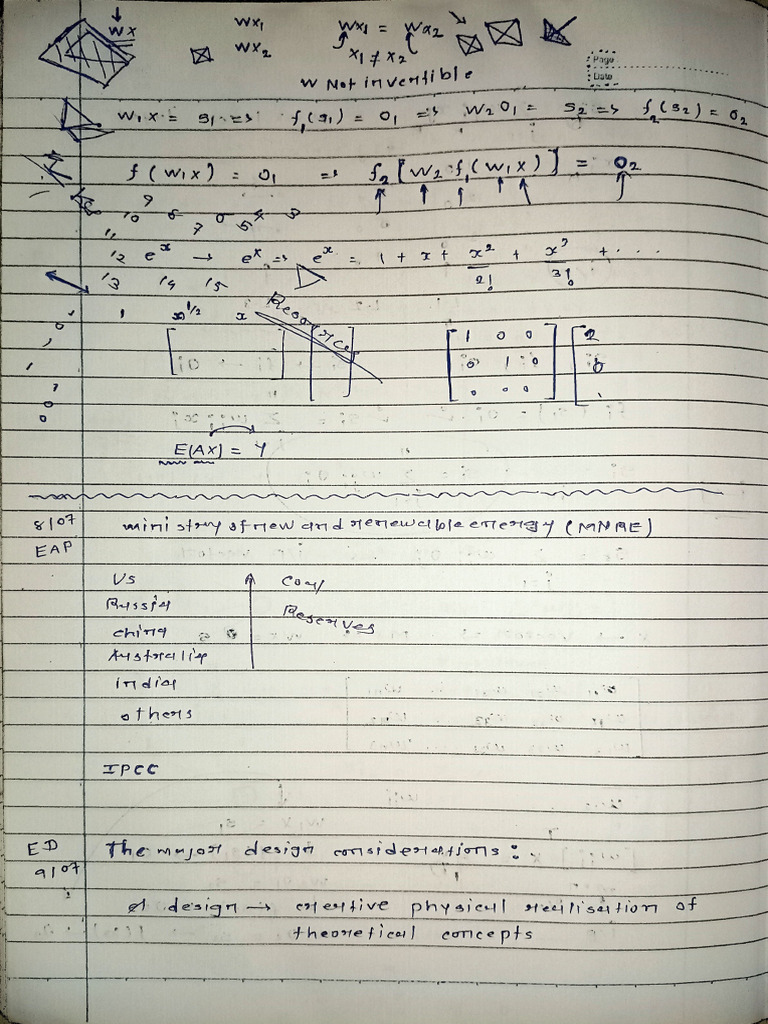 wx
wx₁
wx₂
wx₁ = wx₂
x₁ ≠ x₂
w Not invertible
Page
Date
w₁x = s₁ => f₁(s₁) = o₁ => w₂o₁ = s₂ => f₂(s₂) = o₂
f(w₁x) = o₁ => f₂[w₂ f₁(w₁x)] = o₂
9
10 6 0 4 3
11 7 5
12 eˣ → eˣ => eˣ = 1 + x + x²/2! + x³/3! + ....
13 14 15
1 x^1/2 x
1 0 0 2
0 1 0 6
. 0 0 .
E(AX) = Y
8/07 ministry of new and renewable energy (MNRE)
EAP
US Coal
Russia Reserves
china
Australia
india
others
IPCC
ED The major design considerations :
9/07
A design → creative physical realisation of
theoretical concepts